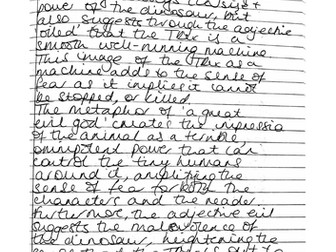 power of the dinosaur, but
also suggests through the adjective
'oiled' that the TRex is a
smooth well-running machine.
This image of the TRex as a
machine adds to the sense of
fear as it implies it cannot
be stopped, or killed.
The metaphor of 'a great
evil god' creates the impression
of the animal as a terrible
omnipotent power that can
control the tiny humans
around it, amplifying the
sense of fear for both the
characters and the reader.
Furturmore, the adjective evil
suggests the malevolence of
the dinosaur, heightening the